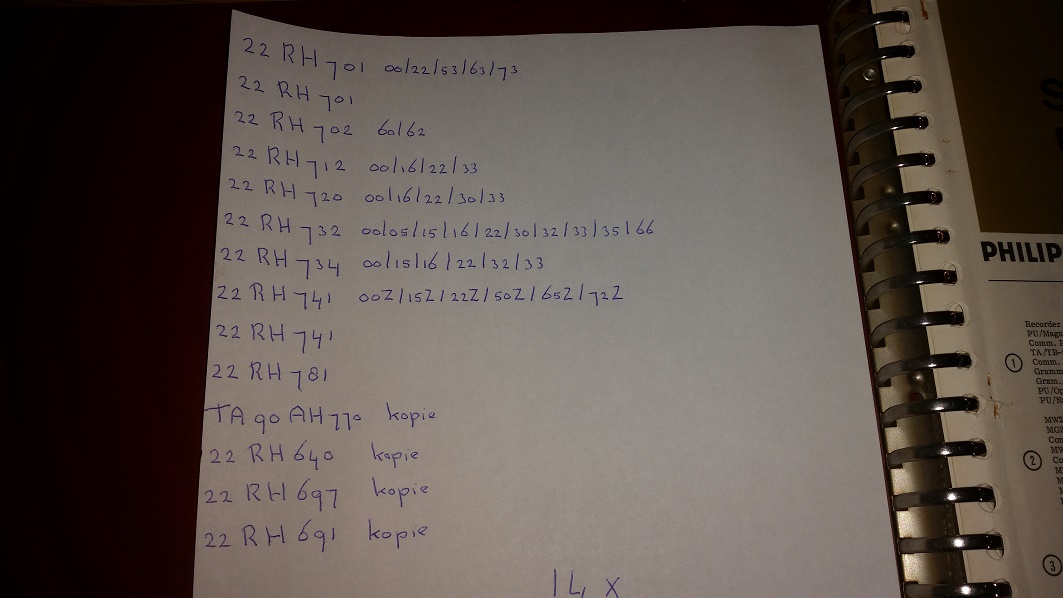 22 RH 701 00/22/53/63/73
22 RH 701
22 RH 702 60/62
22 RH 712 00/16/22/33
22 RH 720 00/16/22/30/33
22 RH 732 00/05/15/16/22/30/32/33/35/66
22 RH 734 00/15/16/22/32/33
22 RH 741 00Z/15Z/22Z/50Z/65Z/72Z
22 RH 741
22 RH 781
TA 90 AH 770 kopie
22 RH 640 kopie
22 RH 697 kopie
22 RH 691 kopie
14 X
S
PHILIP
Recorder
PU/Magn
Comm. P
TA/TB-
1
Comm.
Gramm
Gram.
PU/Op
PU/No
MW2
MG2
Con
MW
2
Co
3